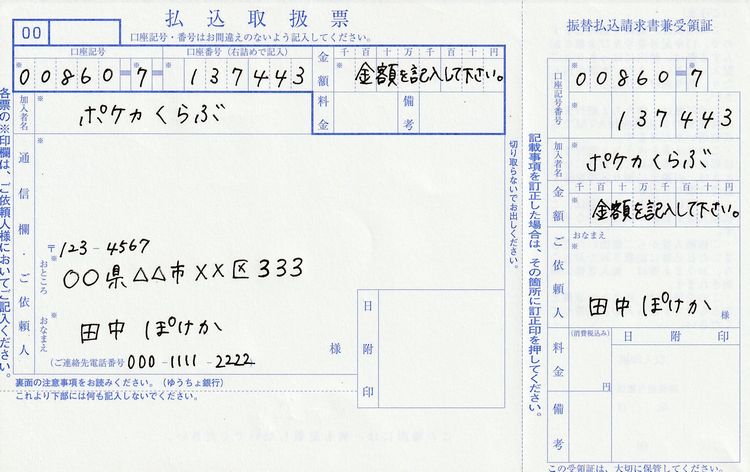 00
払込取扱票
口座記号・番号はお間違えのないよう記入してください。
口座記号
口座番号(右詰めで記入)
00860-7-137443
金額
千百十万千百十円
金額を記入して下さい。
加入者名
ポケカくらぶ
料金
備考
通信欄・ご依頼人
〒123-4567
おところ
〇〇県△△市××区333
おなまえ
田中 ぽけか
様
(ご連絡先電話番号 000-1111-2222)
日附印
裏面の注意事項をお読みください。(ゆうちょ銀行)
これより下部には何も記入しないでください。
各票の※印欄は、ご依頼人様においてご記入ください。
切り取らないでお出しください。
記載事項を訂正した場合は、その箇所に訂正印を押してください。
振替払込請求書兼受領証
口座記号番号
00860-7
137443
加入者名
ポケカくらぶ
金額
千百十万千百十円
金額を記入して下さい。
ご依頼人
おなまえ
田中 ぽけか
様
(消費税込み)
料金
円
日附印
備考
この受領証は、大切に保管してください。